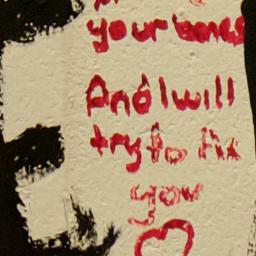 your bones
And I will
try to fix
you